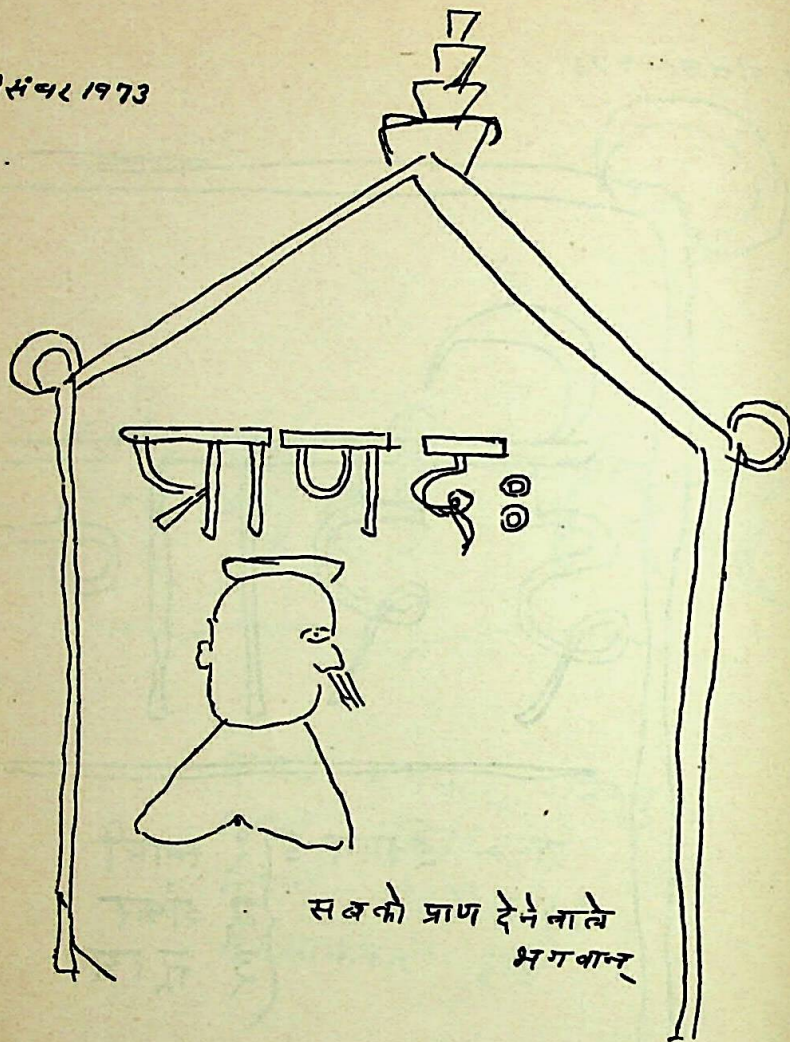 संबर 1973
प्राणदः
सबको प्राण देने वाले
भगवान्